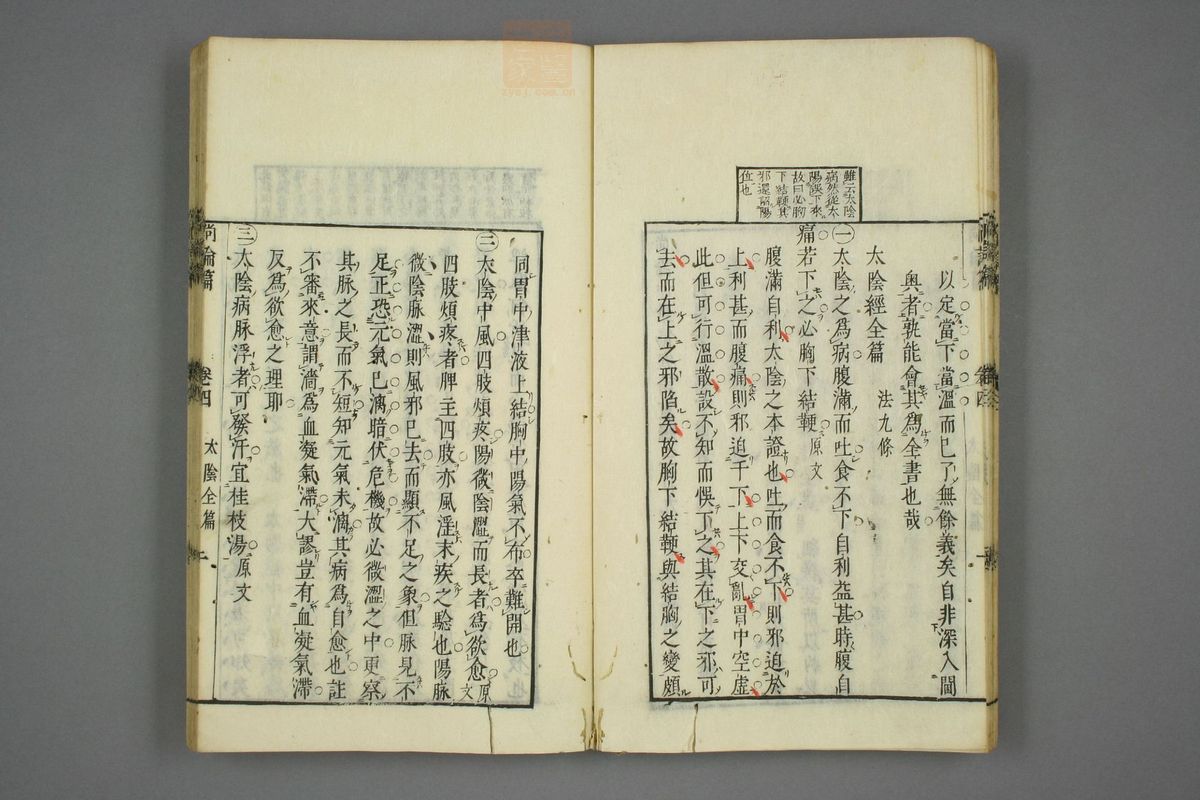 雖云太陰
病然從太
陽誤下來
故曰必胸
下結鞕其
邪還留陽
位也
以定當下當溫而已了無餘義矣自非深入閫
奥者孰能會其為全書也哉
太陰經全篇 法九條
㊀太陰之為病腹滿而吐食不下自利益甚時腹自
痛若下之必胸下結鞕 原文
腹滿自利太陰之本證也吐而食不下則邪迫於
上利甚而腹痛則邪迫于下上下交亂胃中空虛
此但可行溫散設不知而悞下之其在下之邪可
去而在上之邪陷矣故胸下結鞕與結胸之變頗
同胃中津液上結胸中陽氣不布卒難開也
㊁太陰中風四肢煩疼陽微陰濇而長者為欲愈 原文
四肢煩疼者脾主四肢亦風淫末疾之驗也陽脉
微陰脉濇則風邪已去而顯不足之象但脉見不
足正恐元氣已漓暗伏危機故必微濇之中更察
其脉之長而不短知元氣未漓其病為自愈也註
不審來意謂濇為血凝氣滯大謬豈有血凝氣滯
反為欲愈之理耶
㊂太陰病脉浮者可發汗宜桂枝湯 原文
尚論篇 卷四 太陰全篇 一
zysj.com.cn